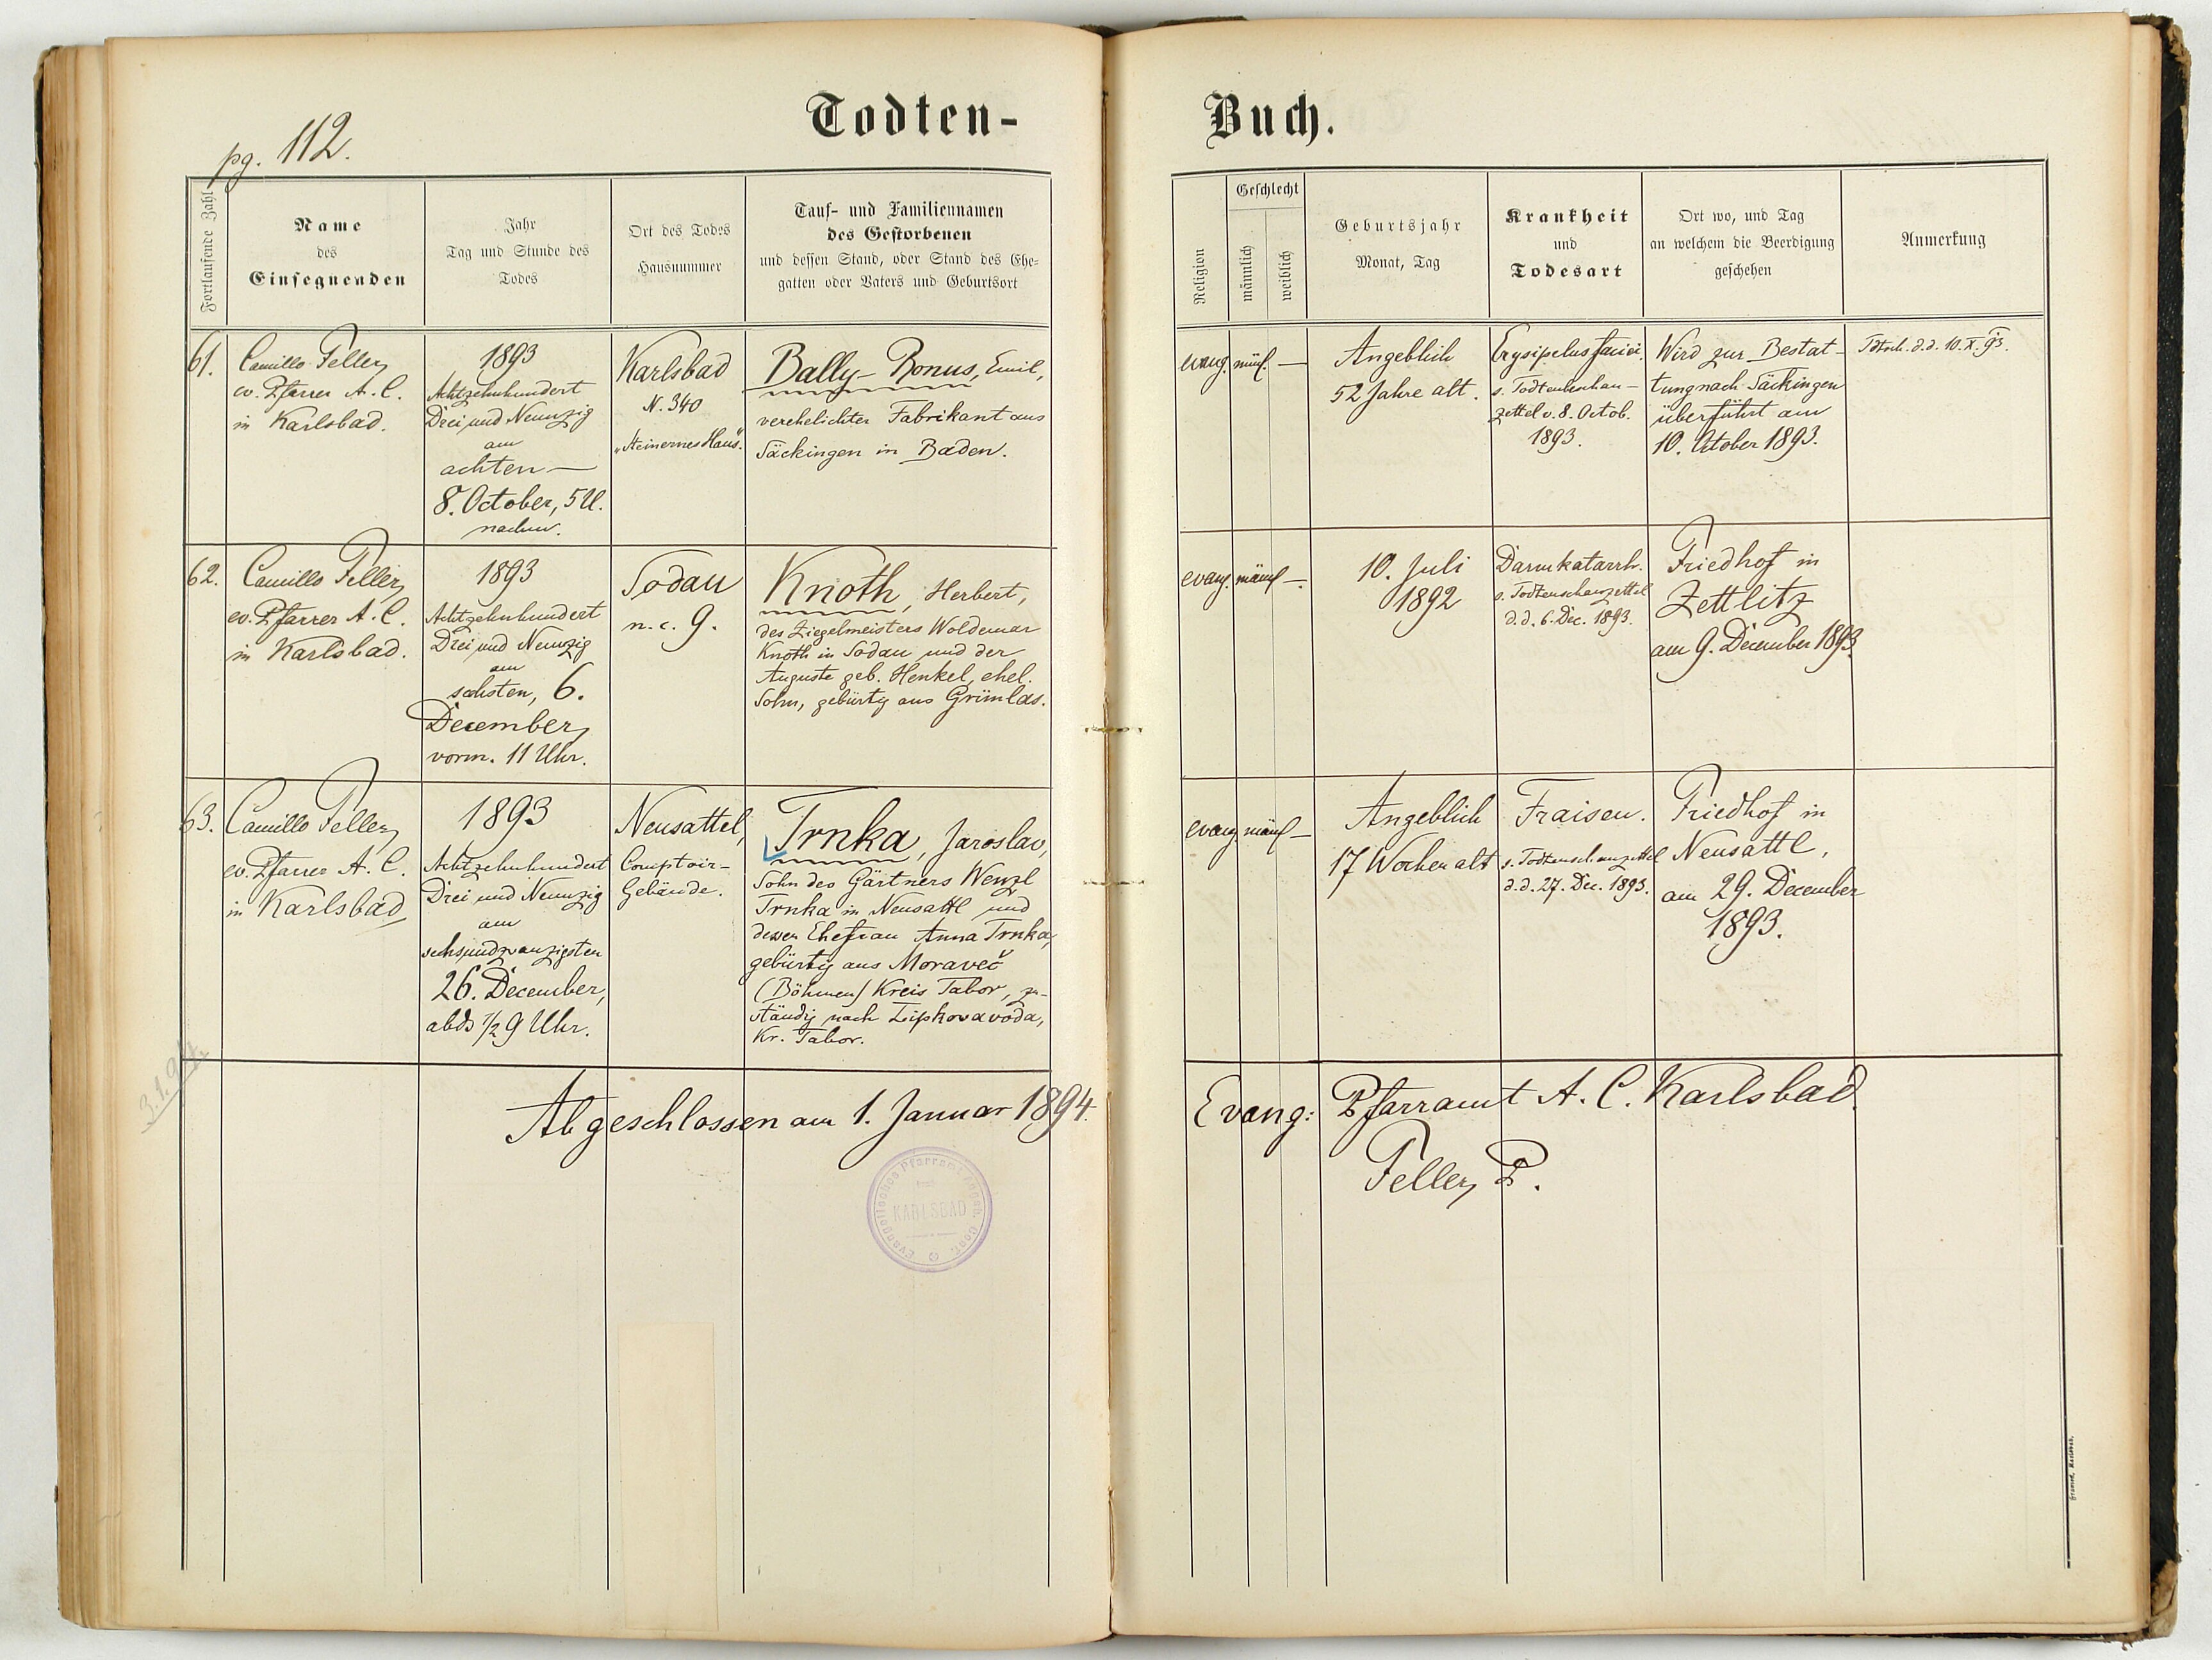 pg. 112.
Todten-
Buch.
Fortlaufende Zahl
Name
des
Einsegnenden
Jahr
Tag und Stunde des
Todes
Ort des Todes
Hausnummer
Tauf- und Familiennamen
des Gestorbenen
und dessen Stand, oder Stand des Ehe-
gatten oder Vaters und Geburtsort
Religion
Geschlecht
männlich
weiblich
Geburtsjahr
Monat, Tag
Krankheit
und
Todesart
Ort wo, und Tag
an welchem die Beerdigung
geschehen
Anmerkung
61.
Camillo Feller,
ev. Pfarrer A. C.
in Karlsbad.
1893
Achtzehnhundert
Drei und Neunzig
am
achten —
8. October, 5 U.
nachm.
Karlsbad
N. 340
„Steinernes Haus“.
Bally-Ronus, Emil,
verehelichter Fabrikant aus
Säckingen in Baden.
evang.
münl.
—
Angeblich
52 Jahre alt.
Erysipelus faciei.
s. Todtenbeschau-
zettel v. 8. Octob.
1893.
Wird zur Bestat-
tung nach Säckingen
überführt am
10. October 1893.
Tdtsch. d.d. 10. X. 93.
62.
Camillo Feller,
ev. Pfarrer A. C.
in Karlsbad.
1893
Achtzehnhundert
Drei und Neunzig
am
sechsten, 6.
December,
vorm. 11 Uhr.
Sodau
n. c. 9.
Knoth, Herbert,
des Ziegelmeisters Woldemar
Knoth in Sodau und der
Auguste geb. Henkel, ehel.
Sohn, gebürtig aus Grünlas.
evang.
männl
—.
10. Juli
1892
Darmkatarrh.
s. Todtenschauzettel
d. d. 6. Dec. 1893.
Friedhof in
Zettlitz
am 9. December 1893.
63.
Camillo Feller,
ev. Pfarrer A. C.
in Karlsbad
1893
Achtzehnhundert
Drei und Neunzig
am
sechsundzwanzigsten
26. December,
abds ½ 9 Uhr.
Neusattel,
Comptoir-
Gebäude.
Trnka, Jaroslav,
Sohn des Gärtners Wenzl
Trnka in Neusattl und
dessen Ehefrau Anna Trnka,
gebürtig aus Moraveč
(Böhmen) Kreis Tabor, zu-
ständig nach Lipkovavoda,
Kr. Tabor.
evang.
männl
—
Angeblich
17 Wochen alt
Fraisen.
s. Todtenschauzettel
d. d. 27. Dec. 1893.
Friedhof in
Neusattl,
am 29. December
1893.
3.1.94.
Abgeschlossen am 1. Januar 1894.
Evang: Pfarramt A. C. Karlsbad.
Feller, P.
Evangelisches Pfarramt Augsb. Conf.
KARLSBAD